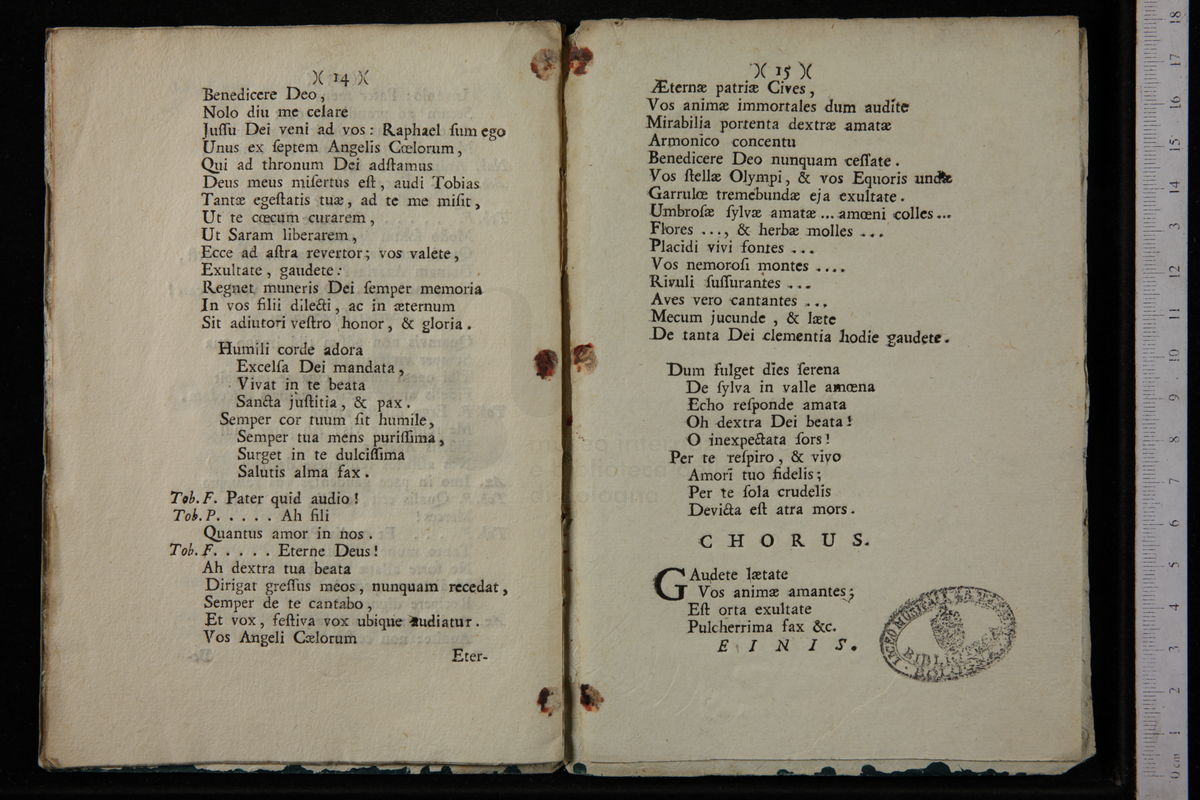 )( 14 )(
Benedicere Deo,
Nolo diu me celare
Juſſu Dei veni ad vos: Raphael ſum ego
Unus ex ſeptem Angelis Cœlorum,
Qui ad thronum Dei adſtamus
Deus meus miſertus eſt, audi Tobias
Tantæ egeſtatis tuæ, ad te me miſit,
Ut te cœcum curarem,
Ut Saram liberarem,
Ecce ad aſtra revertor; vos valete,
Exultate, gaudete:
Regnet muneris Dei ſemper memoria
In vos filii dilecti, ac in æternum
Sit adiutori veſtro honor, & gloria.
Humili corde adora
Excelſa Dei mandata,
Vivat in te beata
Sancta juſtitia, & pax.
Semper cor tuum ſit humile,
Semper tua mens puriſſima,
Surget in te dulciſſima
Salutis alma fax.
Tob. F. Pater quid audio!
Tob. P. . . . . Ah fili
Quantus amor in nos.
Tob. F. . . . . Eterne Deus!
Ah dextra tua beata
Dirigat greſſus meos, nunquam recedat,
Semper de te cantabo,
Et vox, feſtiva vox ubique audiatur.
Vos Angeli Cælorum
Eter-
)( 15 )(
Æternæ patriæ Cives,
Vos animæ immortales dum audite
Mirabilia portenta dextræ amatæ
Armonico concentu
Benedicere Deo nunquam ceſſate.
Vos ſtellæ Olympi, & vos Equoris undæ
Garrulœ tremebundæ eja exultate.
Umbroſæ ſylvæ amatæ ... amœni colles ...
Flores ..., & herbæ molles ...
Placidi vivi fontes ...
Vos nemoroſi montes ....
Rivuli ſuſſurantes ...
Aves vero cantantes ...
Mecum jucunde, & læte
De tanta Dei clementia hodie gaudete.
Dum fulget dies ſerena
De ſylva in valle amœna
Echo reſponde amata
Oh dextra Dei beata!
O inexpectata ſors!
Per te reſpiro, & vivo
Amori tuo fidelis;
Per te ſola crudelis
Devicta eſt atra mors.
CHORUS.
GAudete lætate
Vos animæ amantes;
Eſt orta exultate
Pulcherrima fax &c.
EINIS.
LICEO MUSICALE
BIBLIOTECA
BOLOGNA